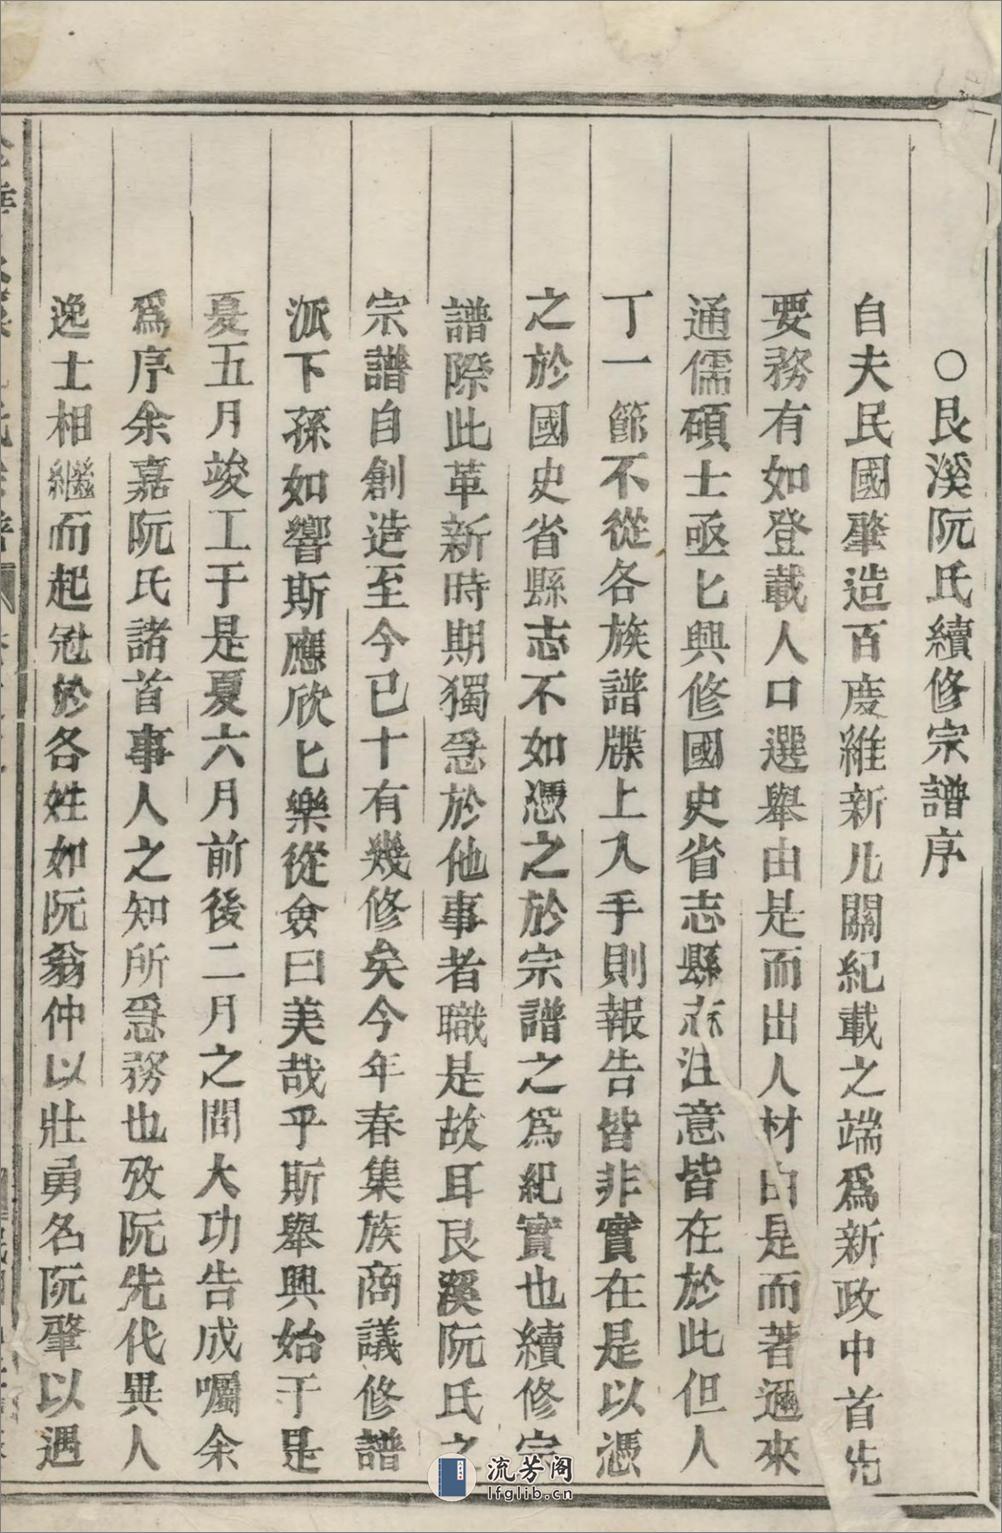 ○艮溪阮氏續修宗譜序
自夫民國肇造百度維新凡關紀載之端爲新政中首先
要務有如登載人口選舉由是而出人材由是而著邇來
通儒碩士亟匕興修國史省志縣志注意皆在於此但人
丁一節不從各族譜牒上入手則報告皆非實在是以憑
之於國史省縣志不如憑之於宗譜之爲紀實也續修宗
譜際此革新時期獨急於他事者職是故耳艮溪阮氏之
宗譜自創造至今已十有幾修矣今年春集族商議修譜
派下孫如響斯應欣匕樂從僉曰美哉乎斯舉興始于是
夏五月竣工于是夏六月前後二月之間大功告成囑余
爲序余嘉阮氏諸首事人之知所急務也攷阮先代異人
逸士相繼而起冠於各姓如阮翁仲以壯勇名阮肇以遇
流芳阁
lfglib.cn